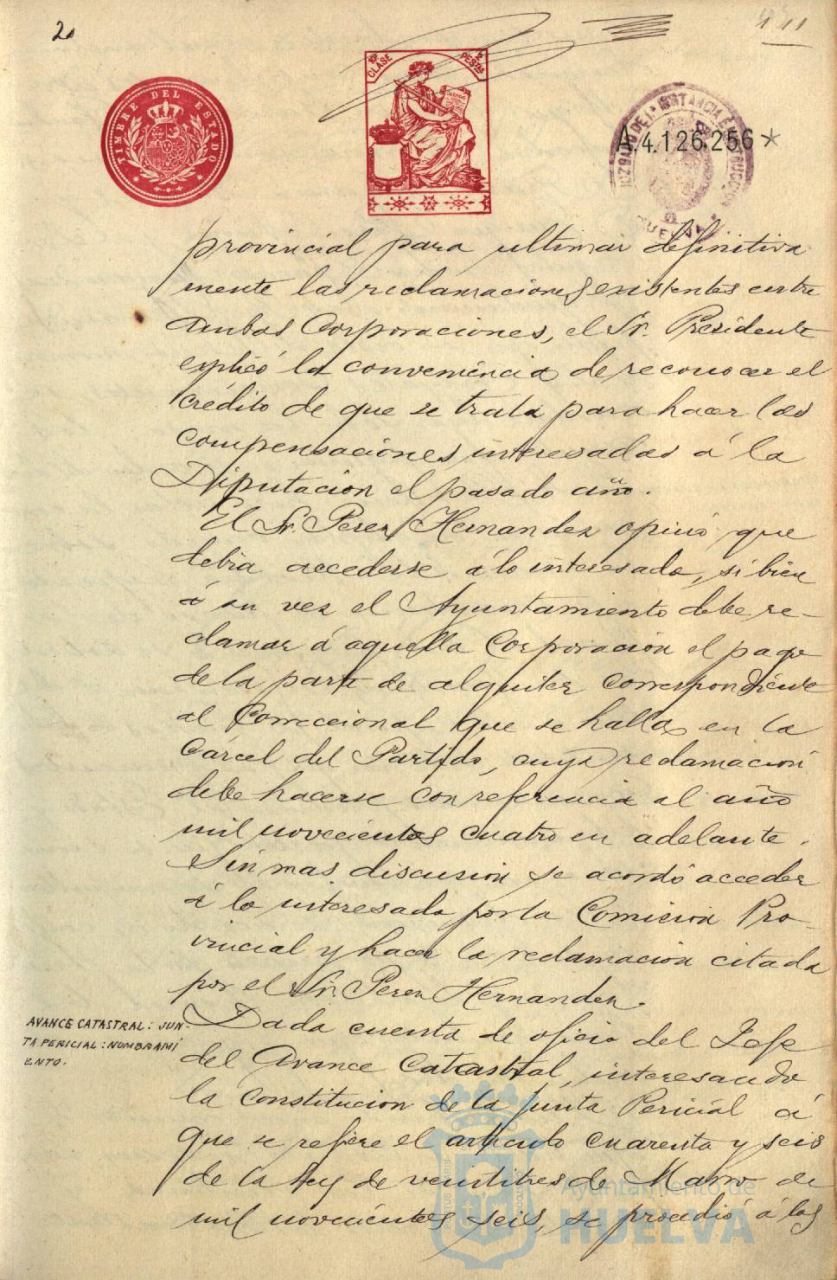 2
TIMBRE DEL ESTADO
10ª CLASE
2 PESETAS
JUZGADO DE 1ª INSTANCIA É INSTRUCCION
HUELVA
A.4.126.256*
provincial para ultimar definitiva
mente las reclamaciones existentes entre
ambas Corporaciones, el Sr. Presidente
explicó la conveniencia de reconocer el
crédito de que se trata para hacer las
compensaciones interesadas á la
Diputacion el pasado año.
El Sr. Perez Hernandez opinó que
debia accederse á lo interesado, si bien
á su vez el Ayuntamiento debe re-
clamar á aquella Corporación el pago
de la parte de alquiler correspondiente
al Correccional que se halla en la
Cárcel del Partido, cuya reclamación
debe hacerse con referencia al año
mil novecientos cuatro en adelante.
Sin mas discusion se acordó acceder
á lo interesado por la Comision Pro-
vincial y hacer la reclamacion citada
por el Sr. Perez Hernandez.
AVANCE CATASTRAL: JUN-
TA PERICIAL: NOMBRAMI
ENTO.
Dada cuenta de oficio del Jefe
del Avance Catastral, interesando
la constitucion de la Junta Pericial á
que se refiere el articulo cuarenta y seis
de la ley de veintitres de Marzo de
mil novecientos seis, se procedió á los
Ayuntamiento de
HUELVA